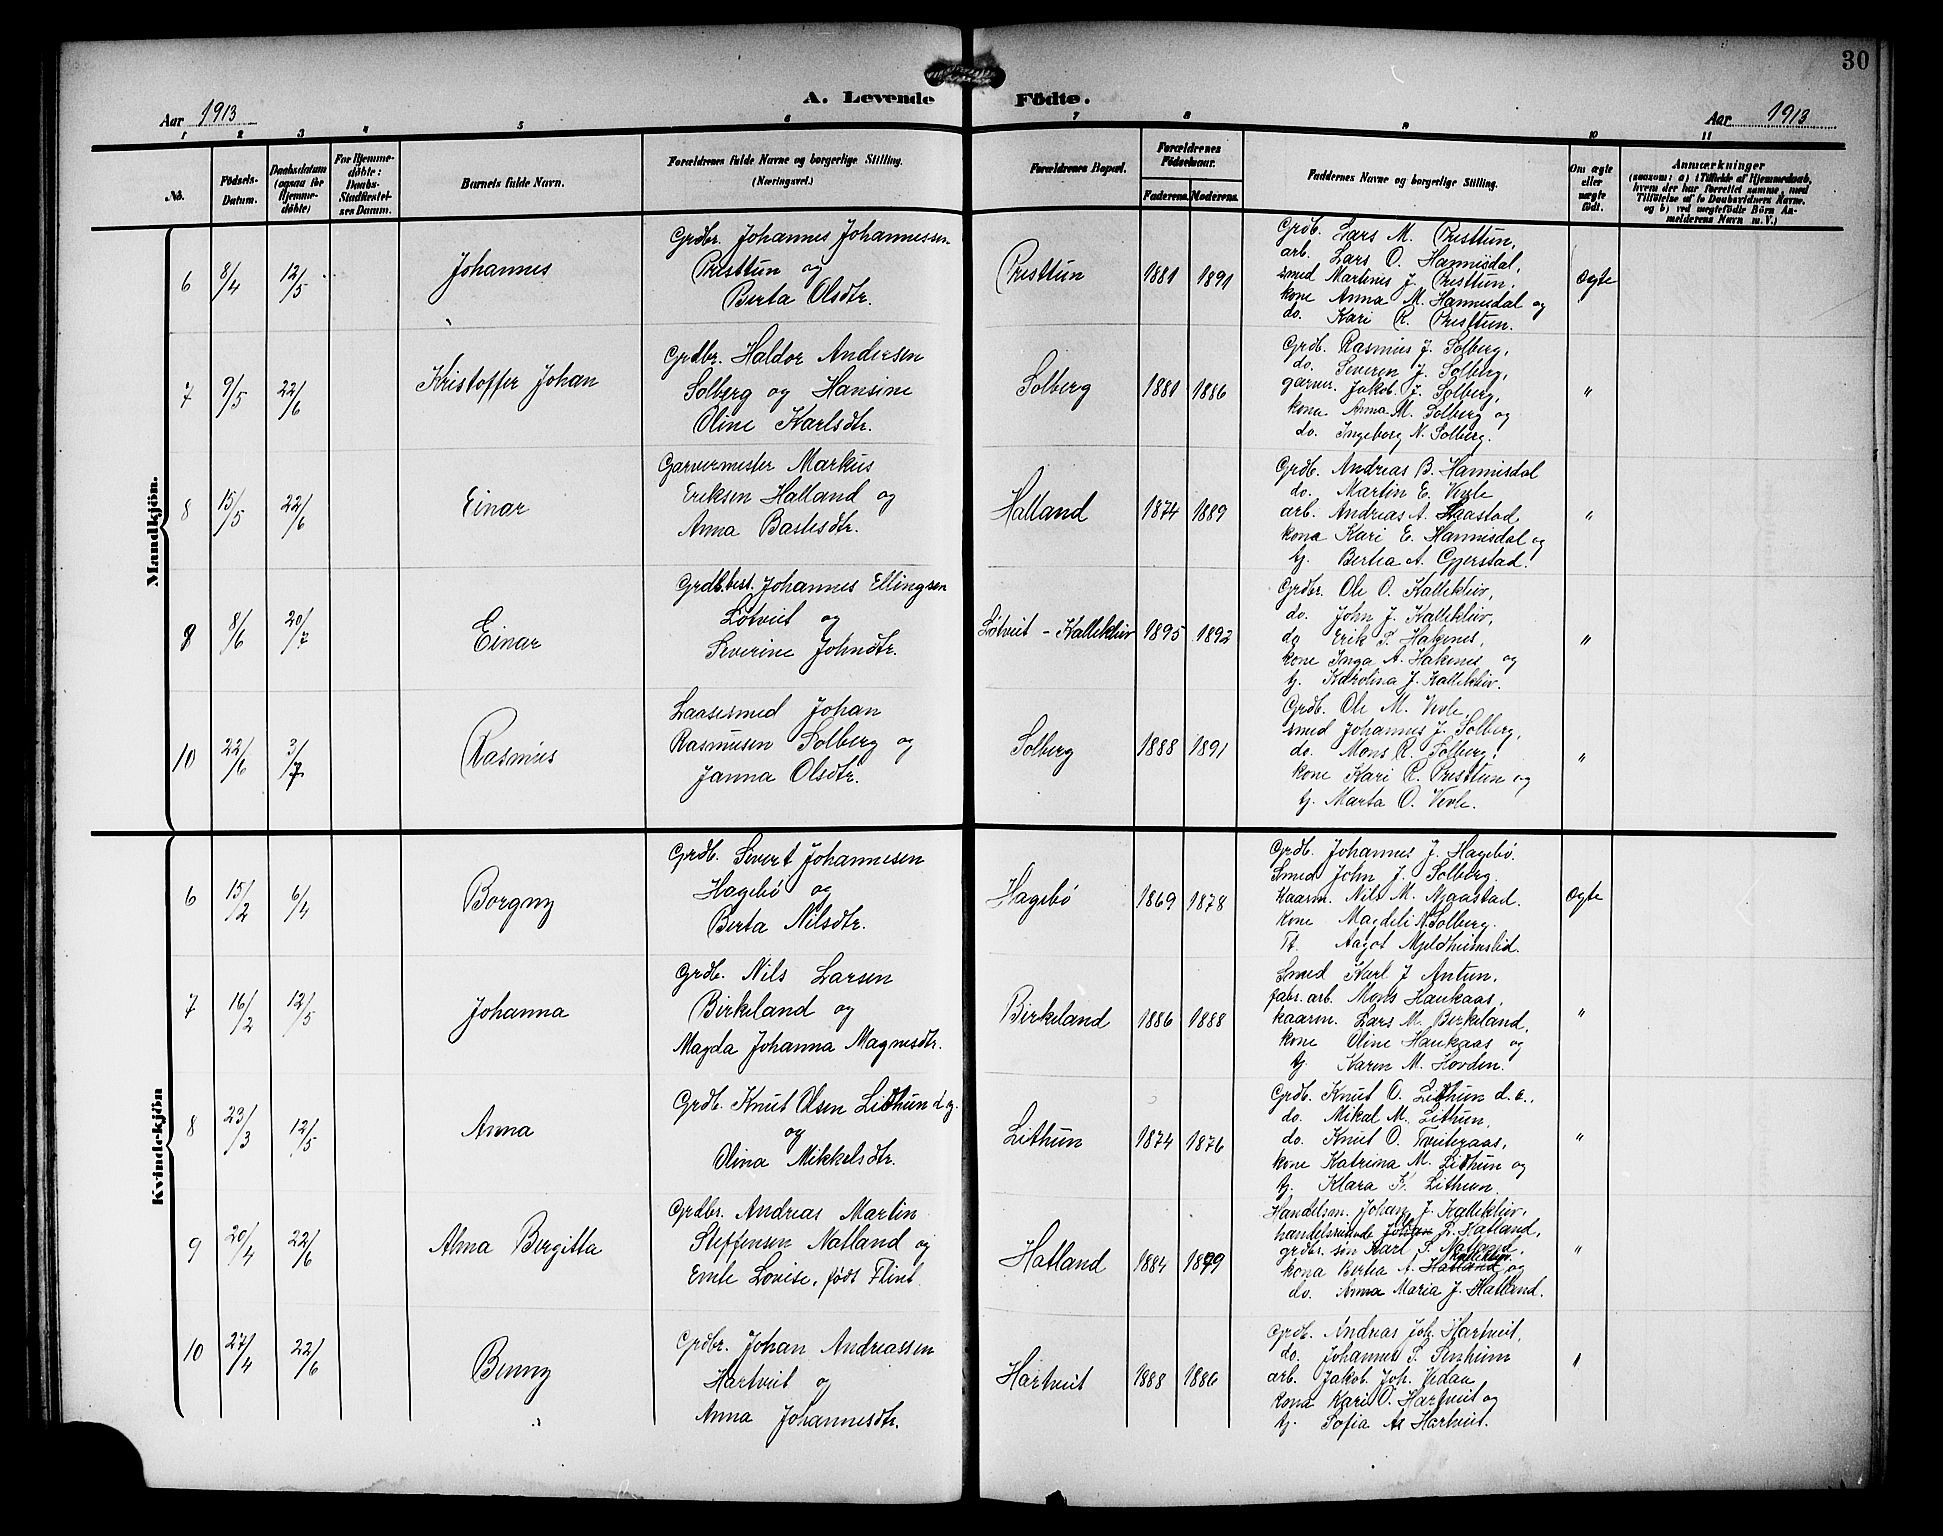 30
A. Levende Födte.
Aar 1913
Aar 1913
1 2 3 4 5 6 7 8 9 10 11
No.
Födsels-Datum.
Daabsdatum (ogsaa for Hjemme-döbte)
For Hjemme-döbte: Daabs-Stadfæstel-sen Datum.
Barnets fulde Navn.
Forældrenes fulde Navne og borgerlige Stilling.
(Næringsvei.)
Forældrenes Bopæl.
Forældrenes Födselsaar.
Faderens. Moderens.
Faddernes Navne og borgerlige Stilling.
Om ægte eller uægte födt.
Anmærkninger
(saasom: a) i Tilfælde af Hjemmedaab,
hvem der har forrettet samme, med
Tilföielse af to Daabsvidners Navne,
og b) ved uægtefödte Börn An-
melderens Navn m. V.)
Mandkjön.
6 8/4 12/5 Johannes
Grdbr. Johannes Johannessen
Presttun og
Berta Olsdtr.
Presttun 1881 1891
Grdb. Lars M. Presttun,
arb. Lars O. Hannisdal,
smed Martinus J. Presttun,
kone Anna M. Hannisdal og
do. Kari R. Presttun.
Ægte
7 9/5 22/6 Kristoffer Johan
Grdbr. Haldor Andersen
Solberg og Hansine
Oline Karlsdtr.
Solberg 1881 1886
Grdb. Rasmus J. Solberg,
do. Severin J. Solberg,
garver Jakob J. Solberg,
kona Anna M. Solberg og
do. Ingeborg N. Solberg.
"
8 15/5 22/6 Einar
Garvermester Markus
Eriksen Hatland og
Anna Bastesdtr.
Hatland 1874 1889
Grdb. Andreas B. Hannisdal
do. Martin E. Vevle
arb. Andreas A. Haastad,
kona Kari E. Hannisdal og
tj. Bertha A. Gjerstad.
"
8 8/6 20/7 Einar
Grdb.best. Johannes Ellingsen
Lötveit og
Severine Johndtr.
Lötveit - Kalleklev 1895 1892
Grdbr. Ole O. Kallekleiv,
do. John J. Kallekleiv,
do Erik S. Hakenes,
kone Inga A. Hakenes og
tj. Karolina J. Kallekleiv.
"
10 22/6 3/7 Rasmus
Laasesmed Johan
Rasmusen Solberg og
Janna Olsdtr.
Solberg 1888 1891
Grdb. Ole M. Vevle,
smed Johannes J. Solberg,
do. Mons R. Solberg,
kone Kari R. Presttun og
tj. Marta O. Vevle.
"
Kvindekjön
6 15/2 6/4 Borgny
Grdb. Sivert Johannesen
Hagebö og
Berta Nilsdtr.
Hagebö 1869 1878
Grdb. Johannes J. Hagebö.
Smed John J. Solberg.
Kaarm. Nils M. Njaastad.
Kone Magdeli N. Solberg.
Tj. Aagot Mjeldheimslid.
Ægte
7 16/2 12/5 Johanna
Grdb. Nils Larsen
Birkeland og
Magda Johanna Magnesdtr.
Birkeland 1886 1888
Smed Karl J Antun,
fabr.arb. Mons Haukaas,
kaarm. Lars M. Birkeland,
kone Oline Haukaas og
tj. Karen M. Hovden.
"
8 23/3 12/5 Anna
Grdb. Knut Olsen Lithun d.y.
og
Olina Mikkelsdtr.
Lithun 1874 1876
Grdb. Knut O. Lithun d.e.,
do. Mikal M. Lithun,
do. Knut O. Tveiteraas,
kone Katrina M. Lithun og
tj. Klara K. Lithun.
"
9 20/4 22/6 Alma Bergitta
Grdbr. Andreas Martin
Steffensen Natland og
Emle Lovise, födt Flint.
Hatland 1884 1899
Handelsm. Johan J. Kallekleiv,
handelsreisende Johan Hatland,
grdbr. sön Karl S. Natland,
kona Bertha A. Hatland Kallekleiv og
do. Anna Maria J. Hatland.
"
10 27/4 22/6 Benny
Grdbr. Johan Andreassen
Hartveit og
Anna Johannesdtr.
Hartveit 1888 1886
Grdb. Andreas Joh. Hartveit,
do. Johannes S.
arb. Jakob Joh. Vedaa
kona Kari O. Hartveit og
tj. Sofia A. Hartveit.
"